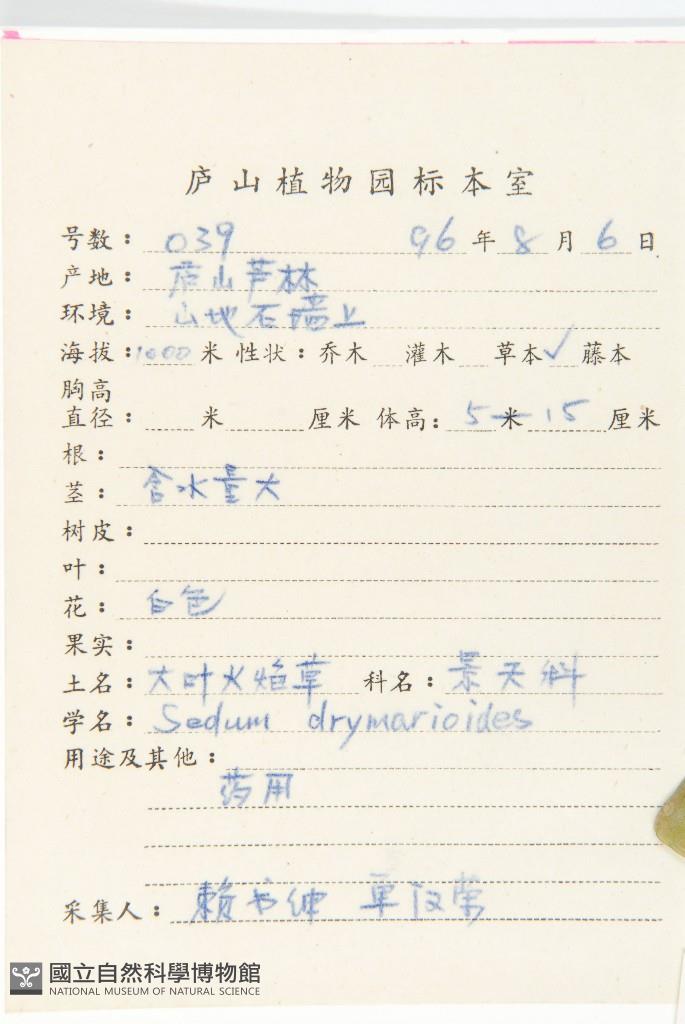 庐山植物园标本室
号数：039 96年8月6日
产地：庐山芦林
环境：山地石墙上
海拔：1000米 性状：乔木 灌木 草本✓ 藤本
胸高
直径： 米 厘米 体高：5米15厘米
根：
茎：含水量大
树皮：
叶：
花：白色
果实：
土名：大叶火焰草 科名：景天科
学名：Sedum drymarioides
用途及其他：
药用
采集人：赖书绅 单汉荣
國立自然科學博物館
NATIONAL MUSEUM OF NATURAL SCIENCE